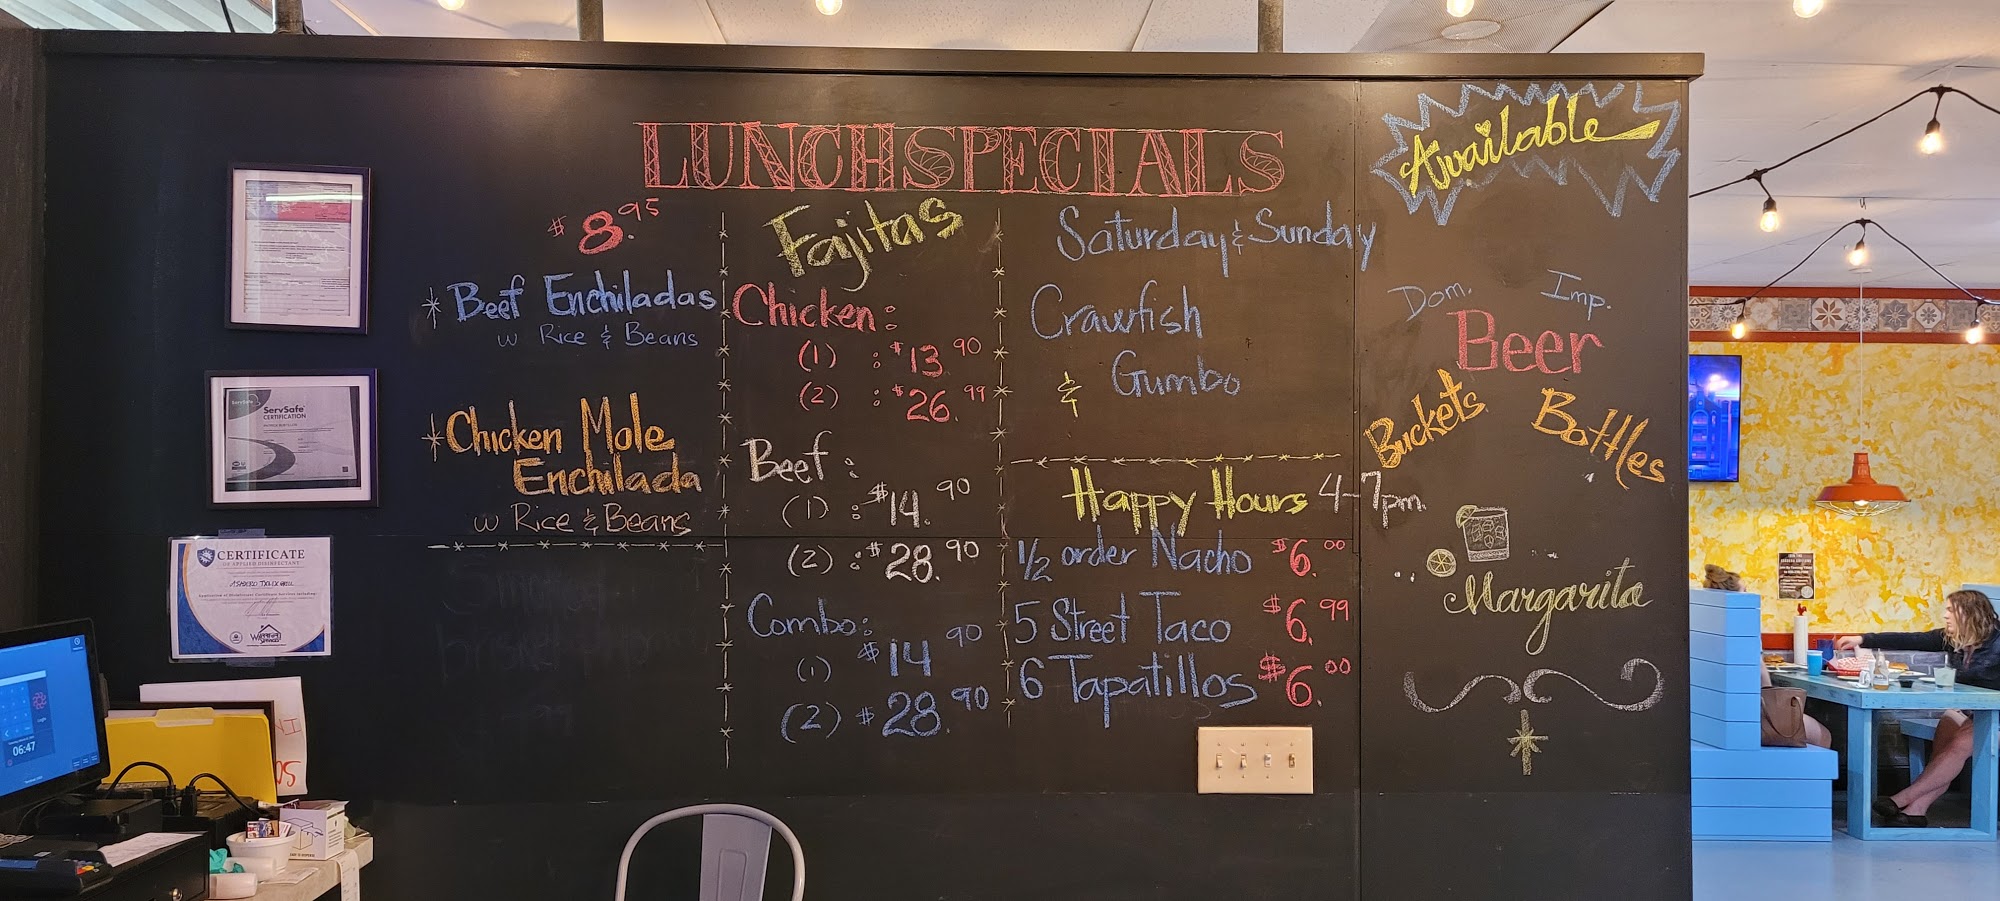 LUNCH SPECIALS
$8.95
* Beef Enchiladas
w Rice & Beans
* Chicken Mole
Enchilada
w Rice & Beans
Fajitas
Chicken:
(1) : $13.90
(2) : $26.99
Beef:
(1) : $14.90
(2) : $28.90
Combo:
(1) $14 90
(2) $28.90
Saturday & Sunday
Crawfish
& Gumbo
Happy Hours 4-7pm.
1/2 order Nacho $6.00
5 Street Taco $6.99
6 Tapatillos $6.00
Available
Dom. Imp.
Beer
Buckets Bottles
Margarita
ServSafe
CERTIFICATION
CERTIFICATE
OF APPLIED DISINFECTANT
06:47